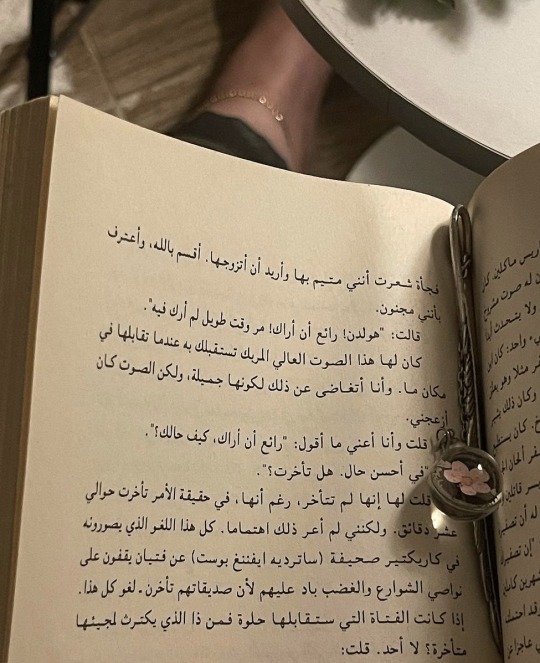 فجأة شعرت أنني متيم بها وأريد أن أتزوجها. أقسم بالله، وأعترف
بأنني مجنون.
قالت: "هولدن! رائع أن أراك! مر وقت طويل لم أرك فيه".
كان لها هذا الصوت العالي المربك تستقبلك به عندما تقابلها في
مكان ما. وأنا أتغاضى عن ذلك لكونها جميلة، ولكن الصوت كان
أزعجني.
قلت وأنا أعني ما أقول: "رائع أن أراك، كيف حالك؟".
"في أحسن حال. هل تأخرت؟".
قلت لها إنها لم تتأخر، رغم أنها، في حقيقة الأمر تأخرت حوالي
عشر دقائق. ولكنني لم أعر ذلك اهتماما. كل هذا اللغو الذي يصورونه
في كاريكتير صحيفة (ساترديه ايفننغ بوست) عن فتيان يقفون على
نواصي الشوارع والغضب باد عليهم لأن صديقاتهم تأخرن. لغو كل هذا.
إذا كانت الفتاة التي ستقابلها حلوة فمن ذا الذي يكترث لمجيئها
متأخرة؟ لا أحد. قلت:
ماكلين، كان
له صوت
ولا يتحدث
واحد: كان
مثلا وهو
وكان ذلك
كان